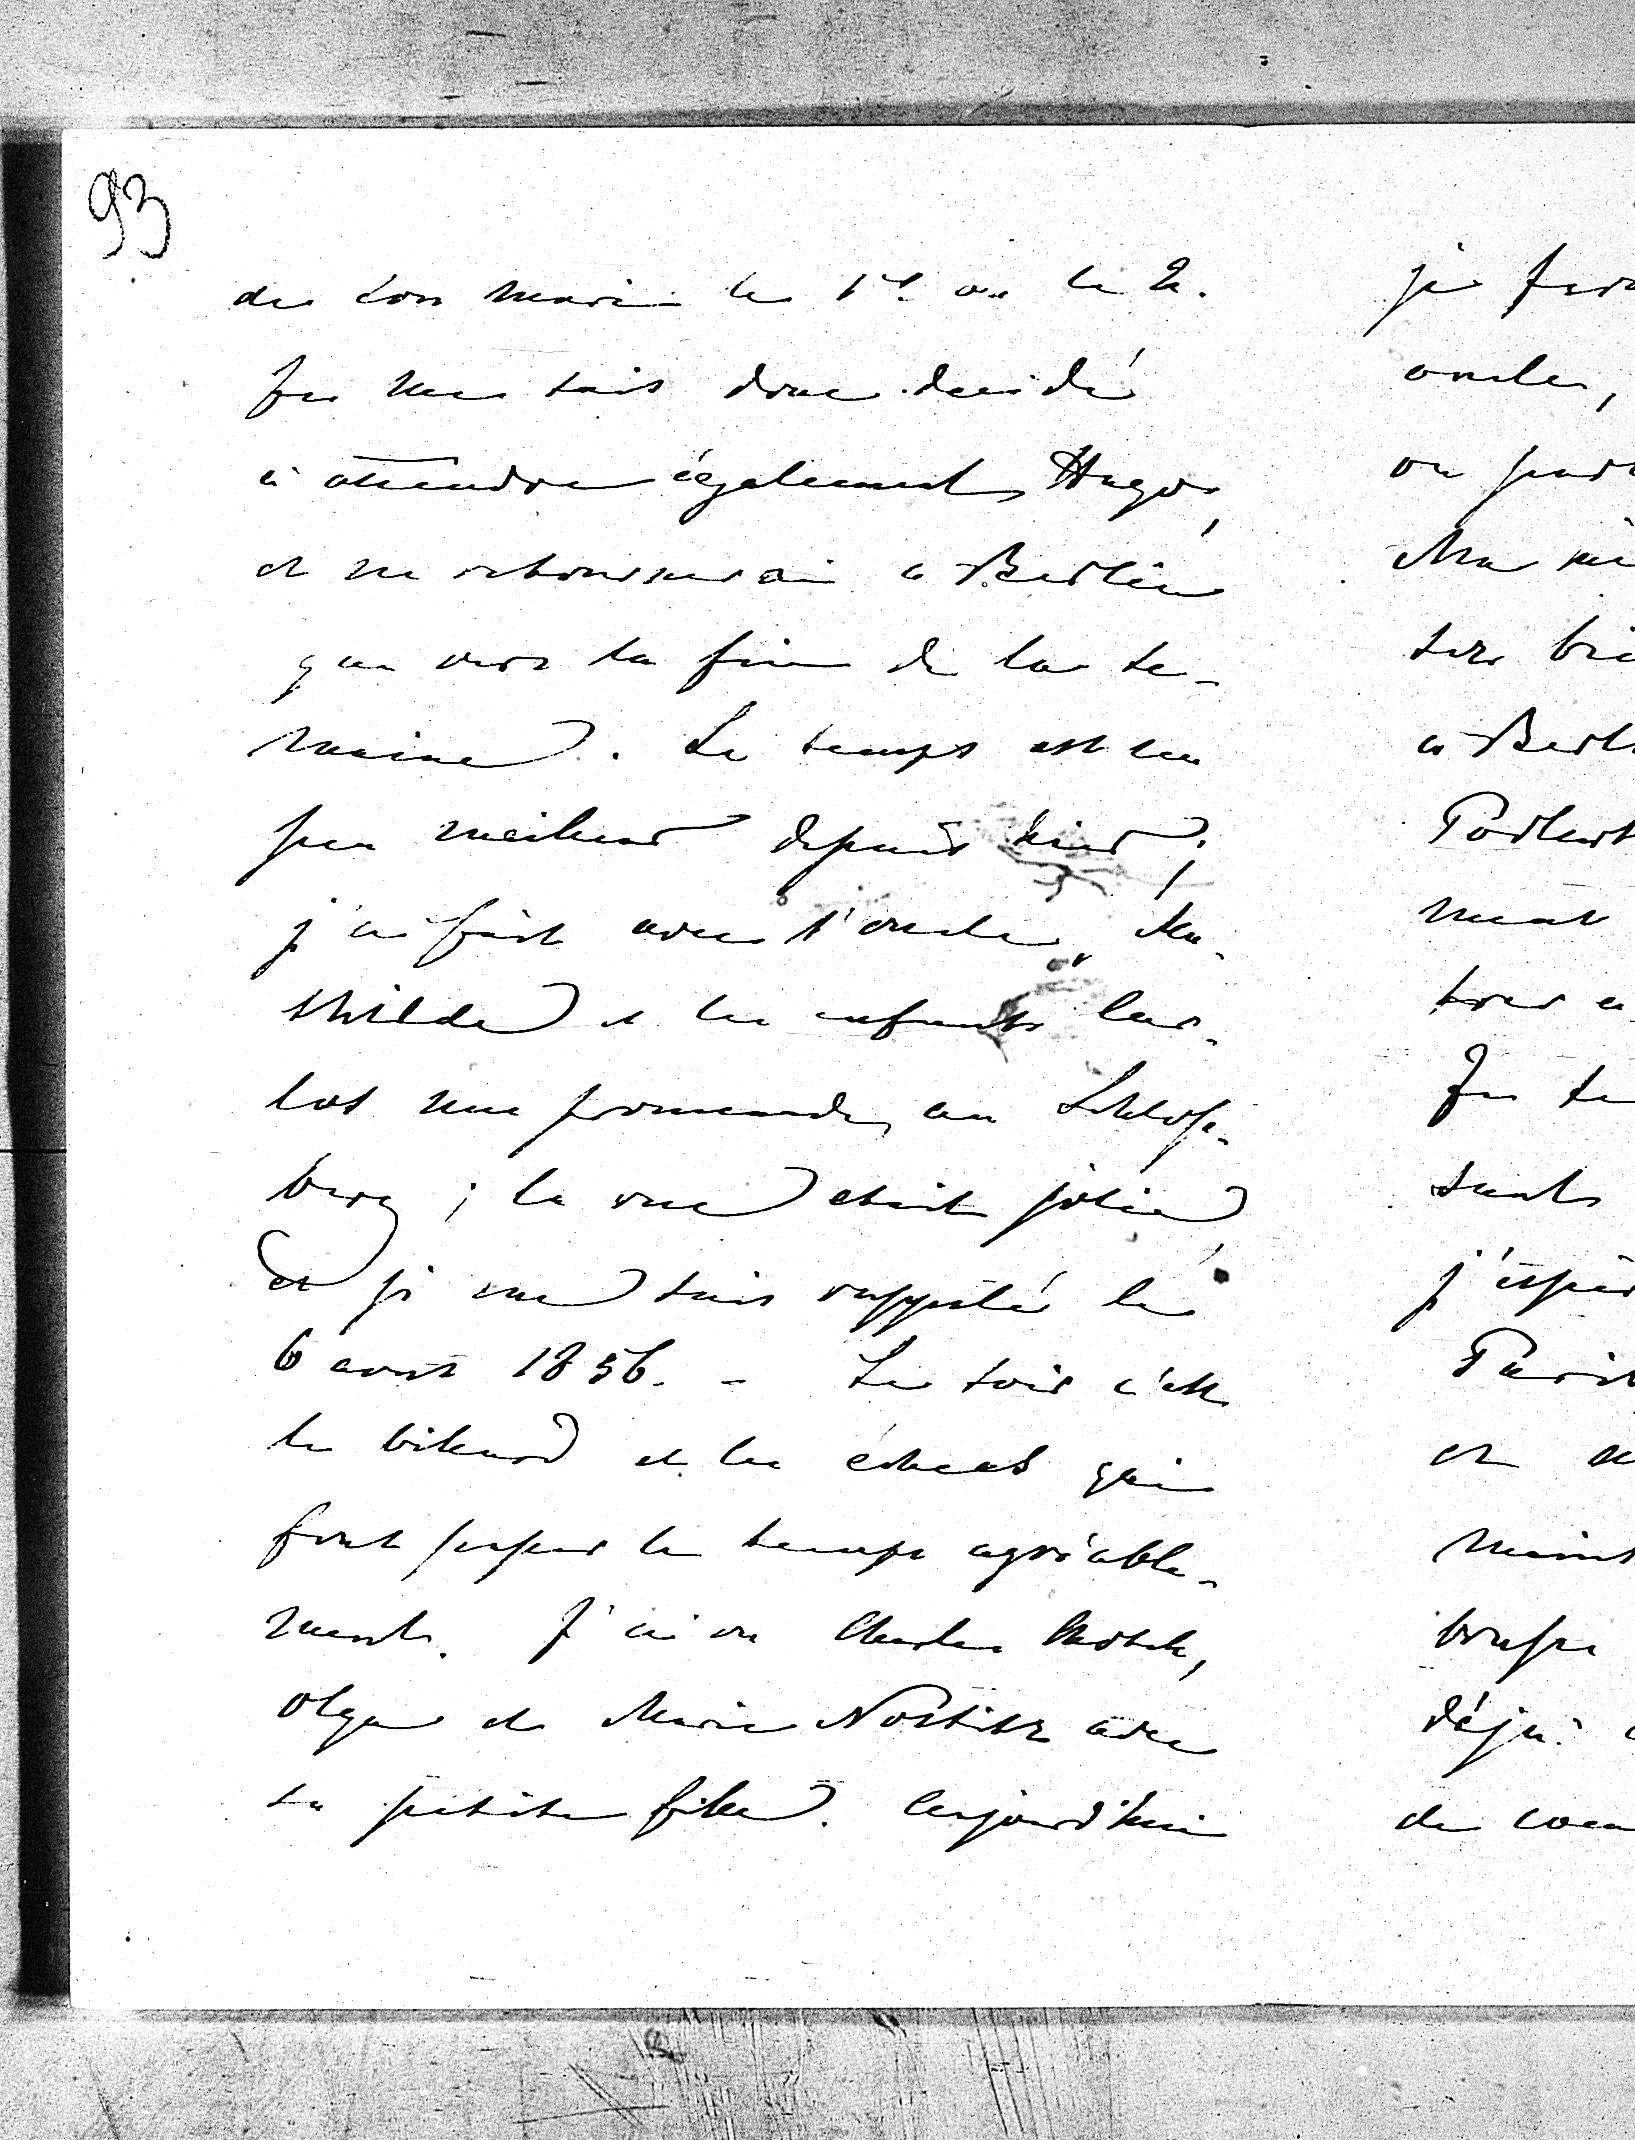 93
de son mari le 1er ou le 2.
Je me suis donc decidé
à attendre également Hugo,
et ne retournerai à Berlin
que vers la fin de la se-
maine. Le temps est un
peu meilleur depuis hier;
j'ai fait avec l'oncle, Ma-
thilde et les enfants Car-
los une promenade au Schloss-
berg; la vue etait jolie,
et je me suis rappelé le
6 aout 1856. - Le soir c'est
le billard et les échecs qui
font passer le temps agréable-
ment. J'ai vu Charles
Olga et Marie Nostitz avec
sa petite fille. Aujourd'hui
je
oncle,
on
Ma
très
à

ment

Je

sents
j'espère
Paris
et

déjà
de